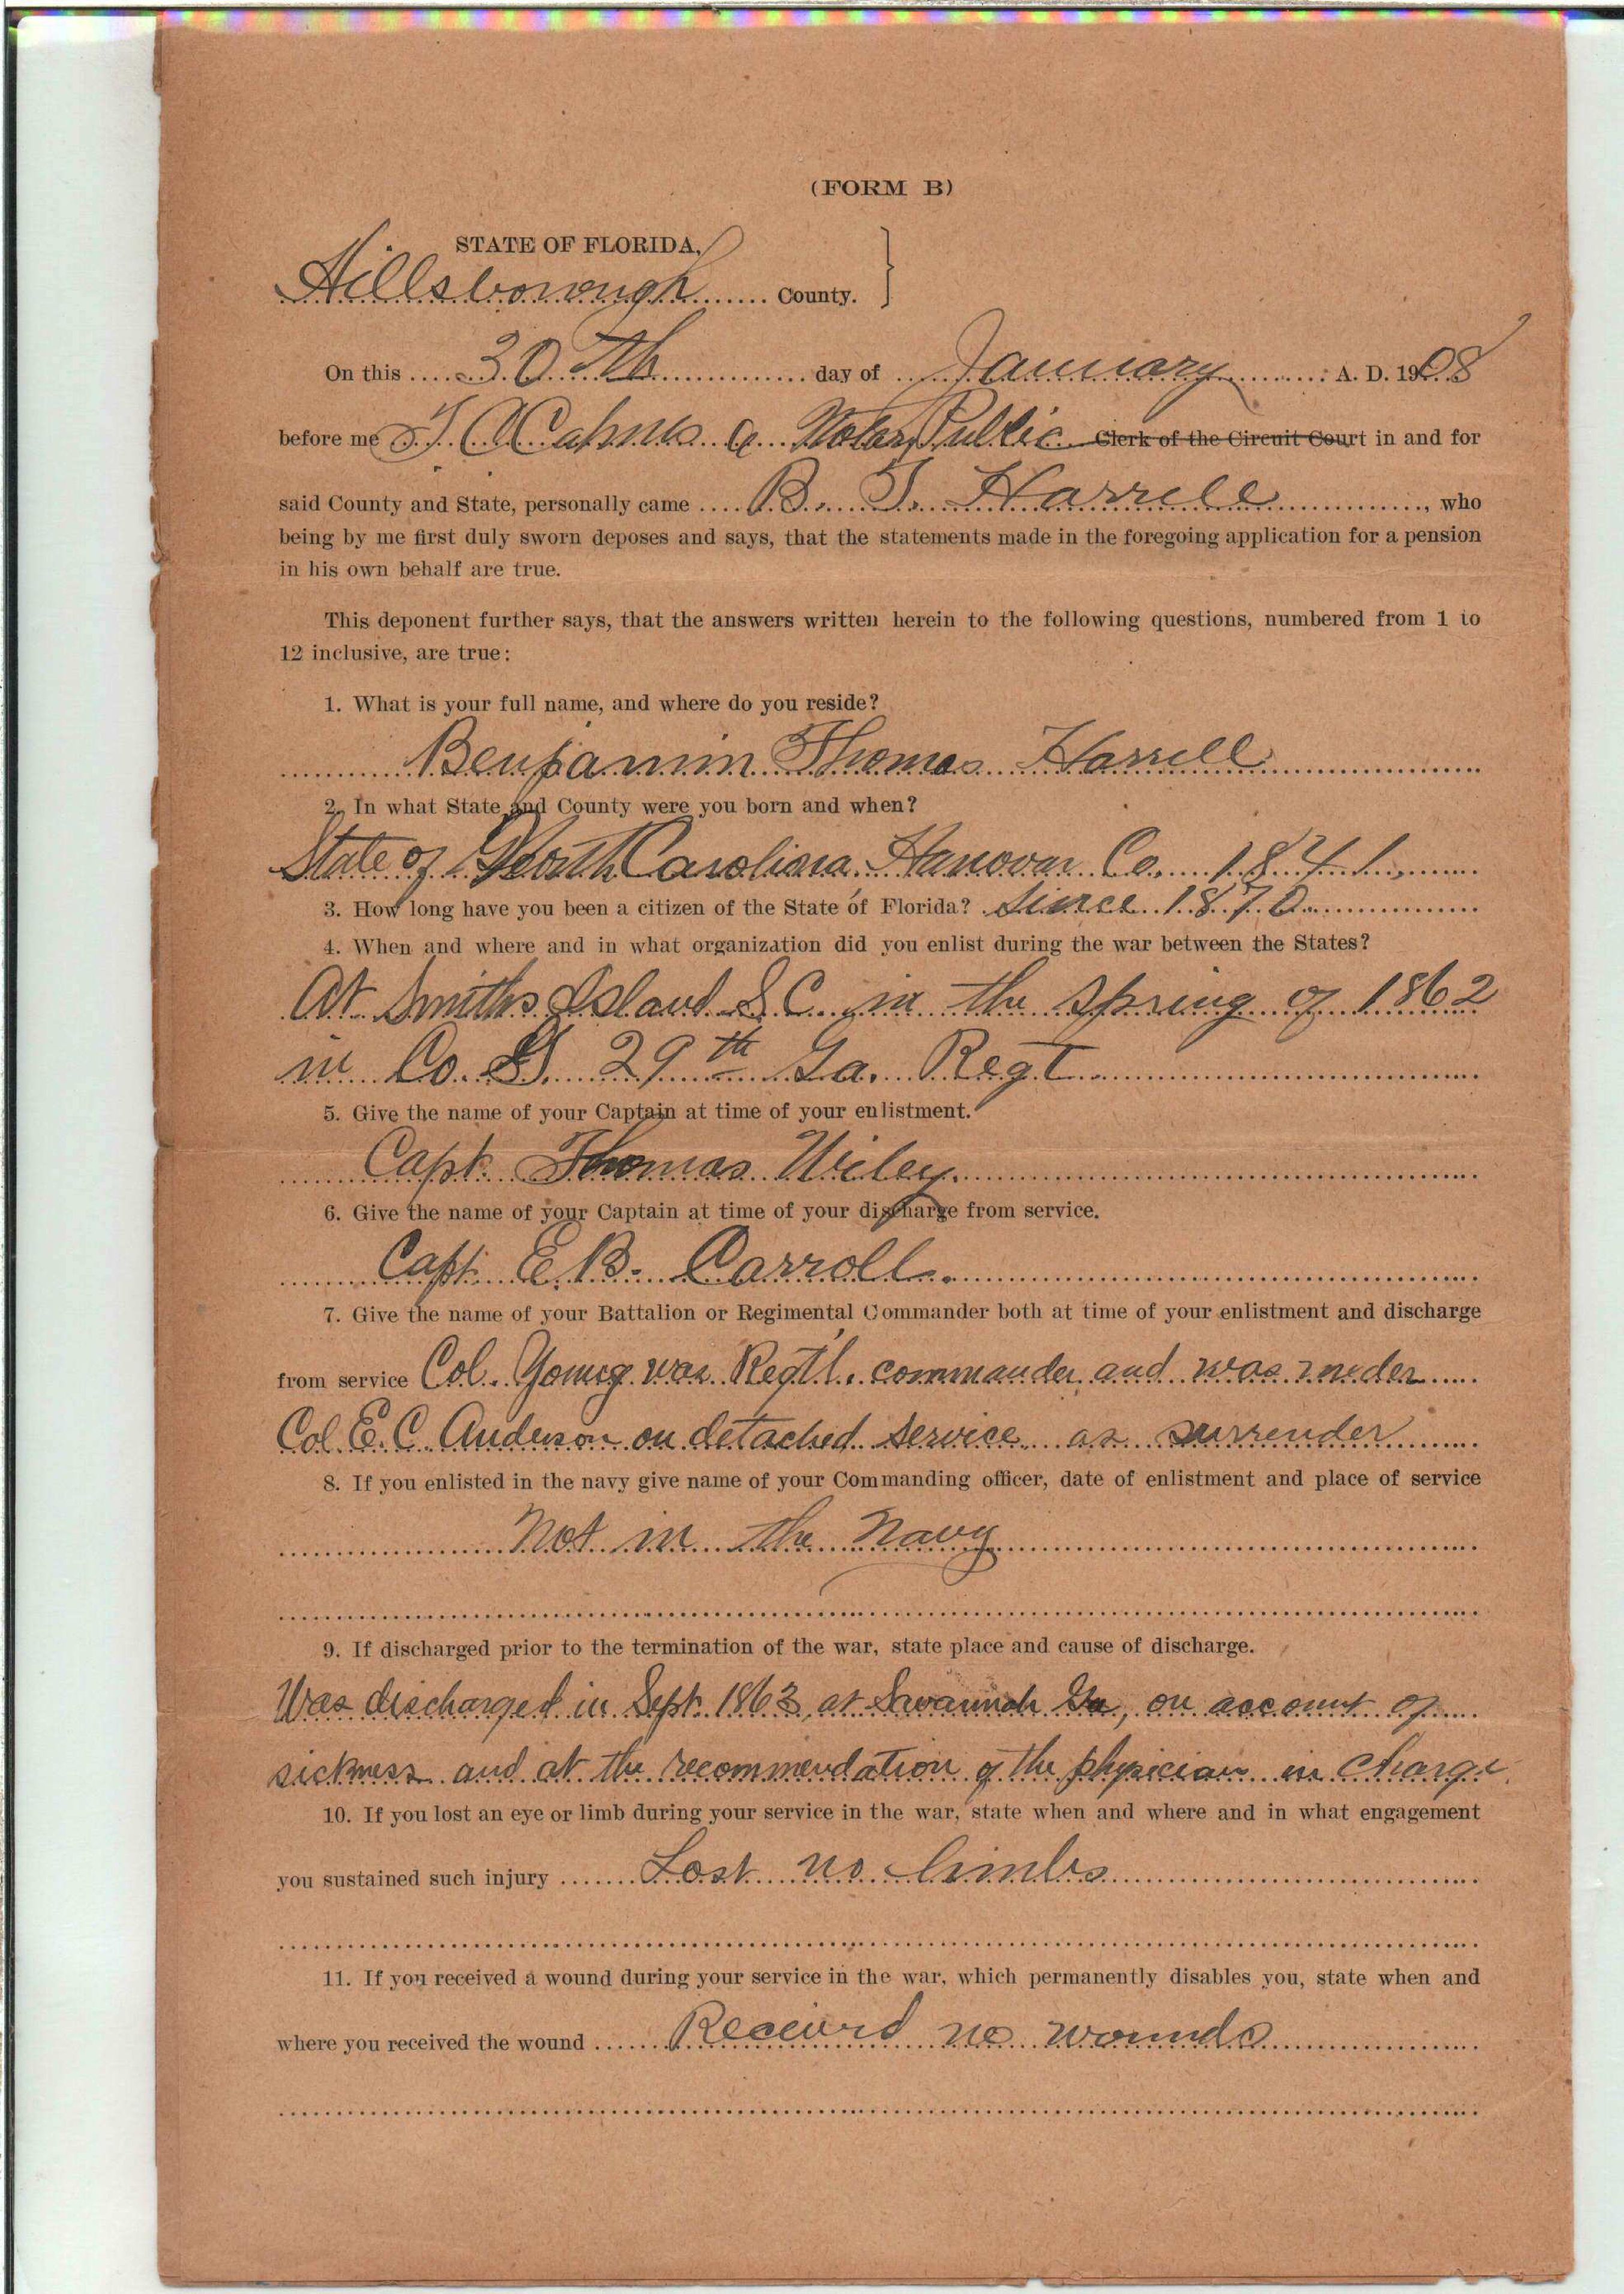 (FORM B)
STATE OF FLORIDA,
Hillsborough County.
On this 30th day of January A. D. 1908
before me a Notary Public Clerk of the Circuit Court in and for
said County and State, personally came B. T. Harrell, who
being by me first duly sworn deposes and says, that the statements made in the foregoing application for a pension
in his own behalf are true.
This deponent further says, that the answers written herein to the following questions, numbered from 1 to
12 inclusive, are true:
1. What is your full name, and where do you reside?
Benjamin Thomas Harrell
2. In what State and County were you born and when?
State of North Carolina Hanovar Co. 1841
3. How long have you been a citizen of the State of Florida? Since 1870
4. When and where and in what organization did you enlist during the war between the States?
At Smiths Island S.C. in the spring of 1862
in Co. 29th Ga. Regt
5. Give the name of your Captain at time of your enlistment.
Capt. Thomas Wiley.
6. Give the name of your Captain at time of your discharge from service.
Capt. E.B. Carroll.
7. Give the name of your Battalion or Regimental Commander both at time of your enlistment and discharge
from service Col. Young was Regtl. commander and was under
Col. E. C. Anderson on detached service as surrender
8. If you enlisted in the navy give name of your Commanding officer, date of enlistment and place of service
Not in the Navy
9. If discharged prior to the termination of the war, state place and cause of discharge.
Was discharged in Sept. 1863, at Savannah Ga, on account of
sickness and at the recommendation of the physician in charge.
10. If you lost an eye or limb during your service in the war, state when and where and in what engagement
you sustained such injury Lost no limbs
11. If you received a wound during your service in the war, which permanently disables you, state when and
where you received the wound Received no wounds